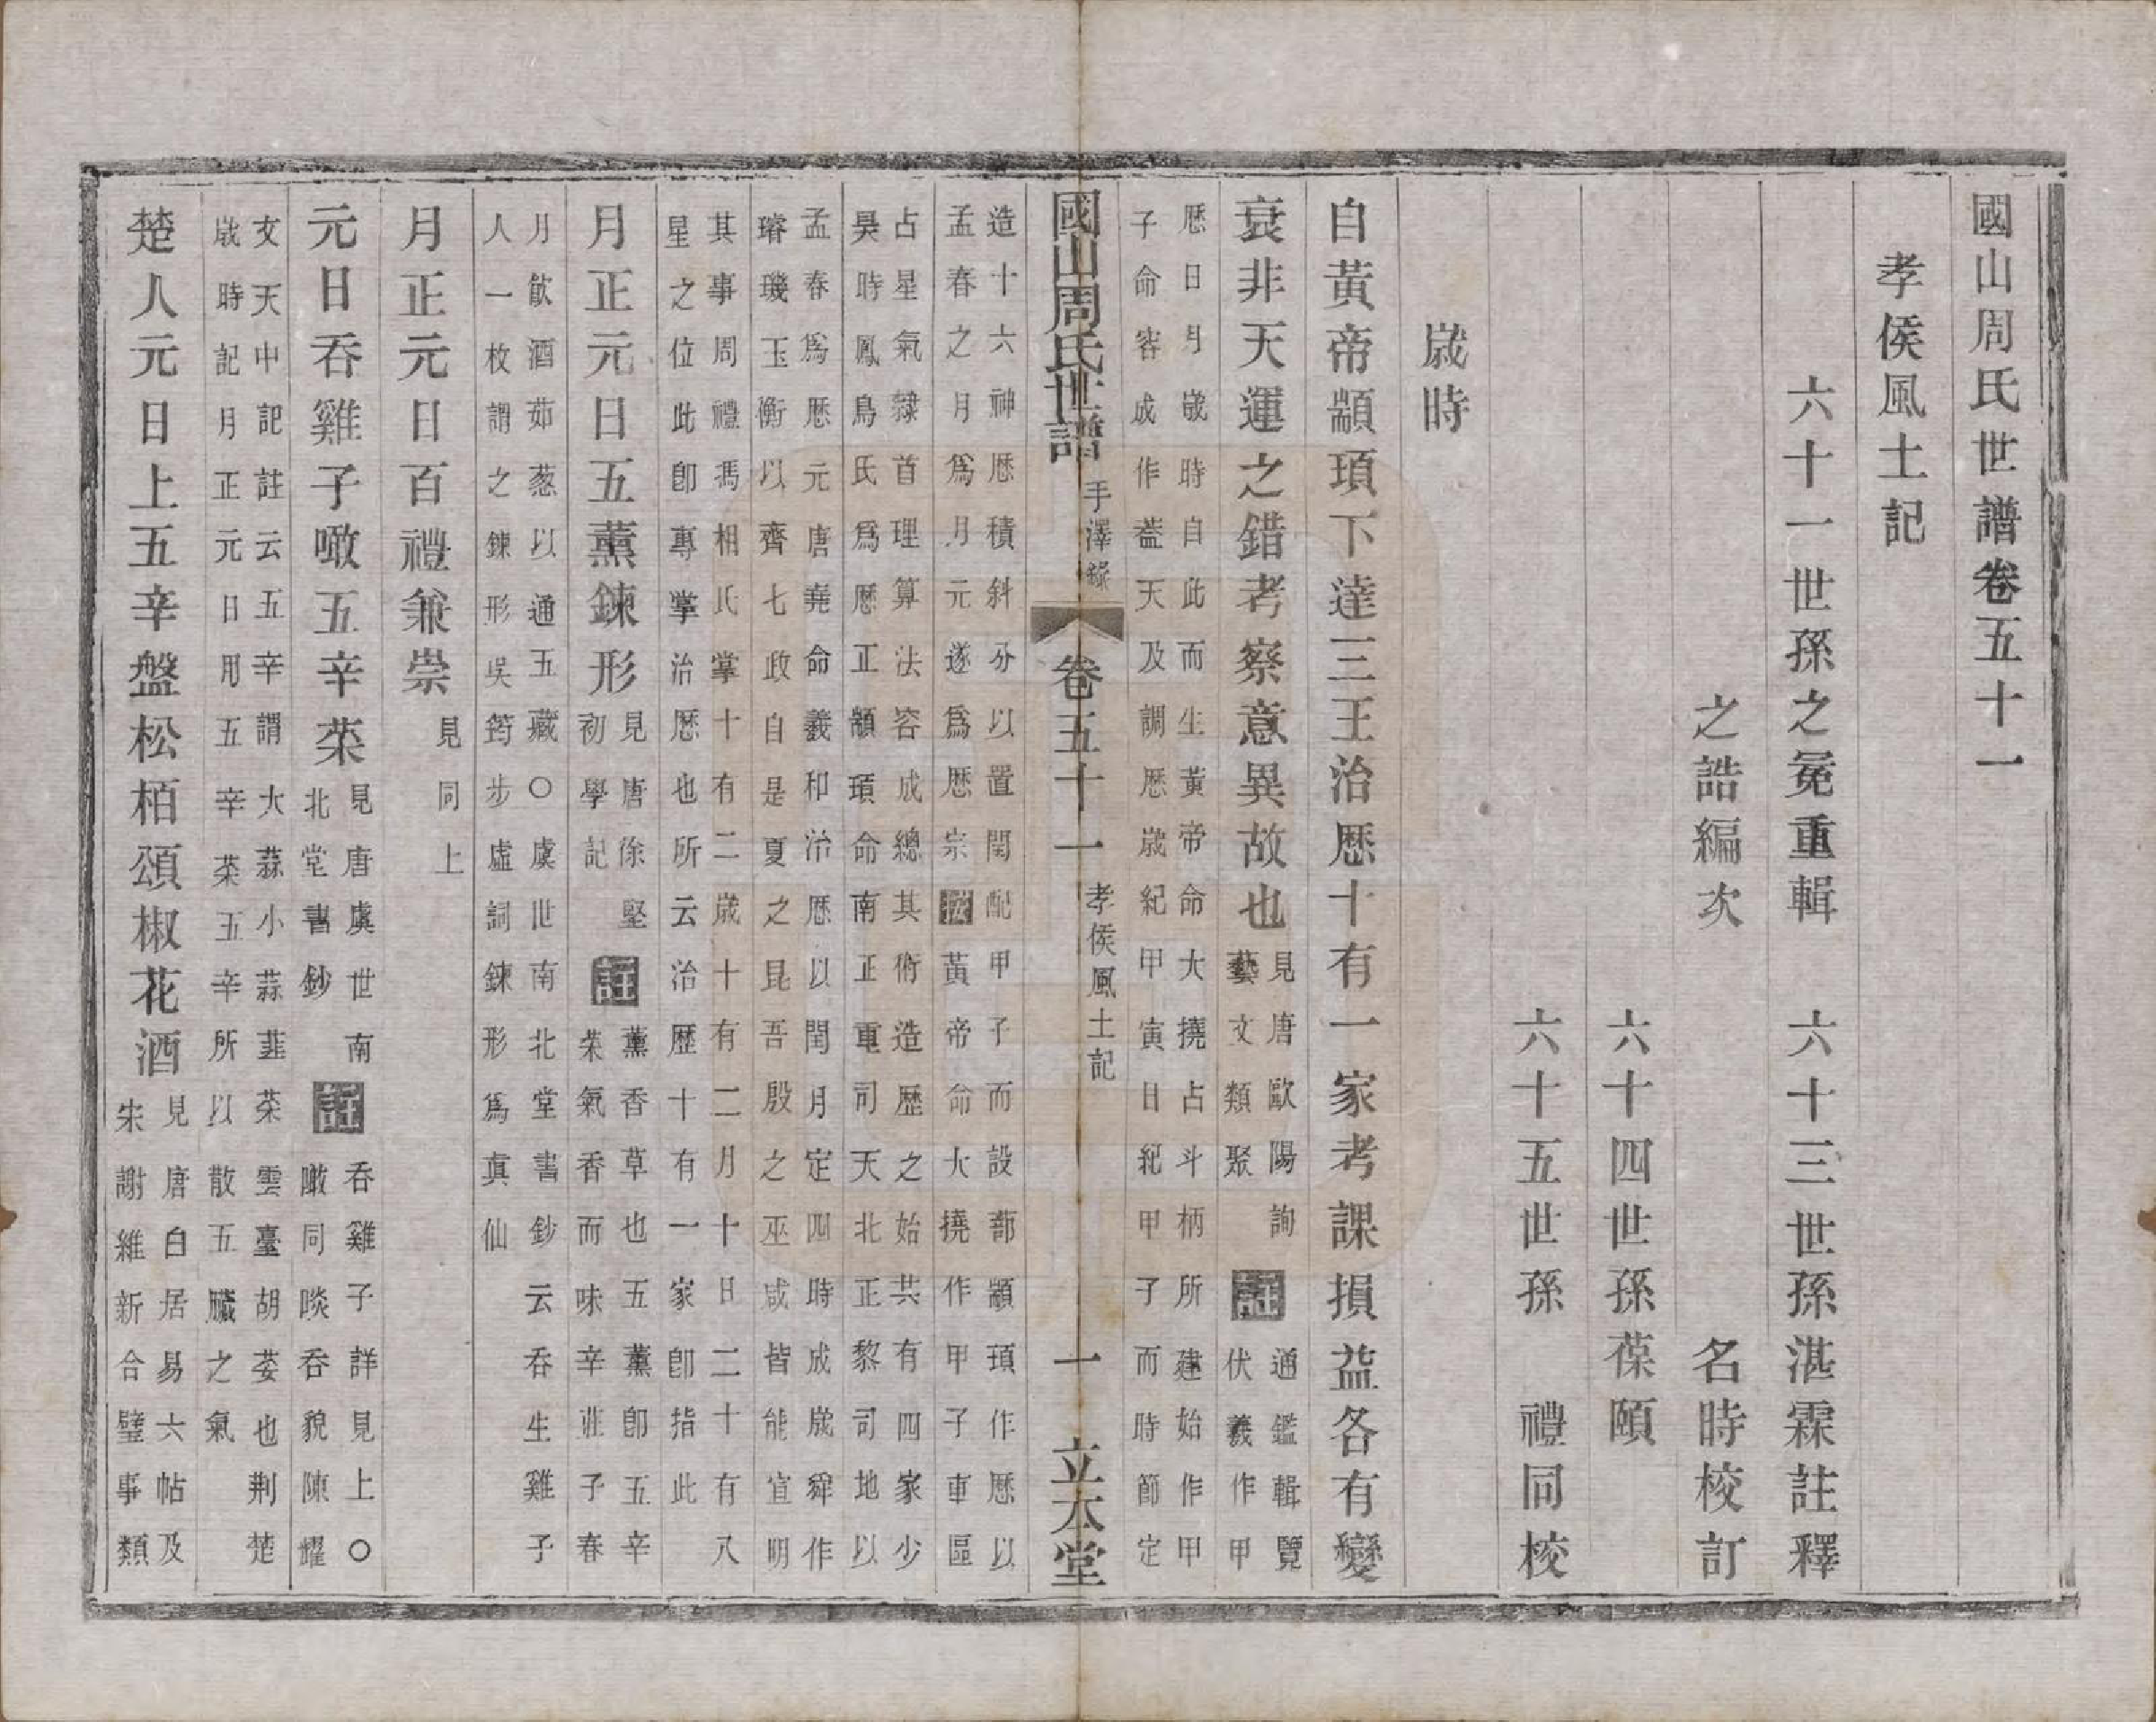 國山周氏世譜卷五十一
孝侯風土記
六十一世孫之冕重輯
六十三世孫湛霖註釋
之誥編次
名時校訂
六十四世孫葆頤
六十五世孫 禮同校
歲時
自黃帝顓頊下達三王治歷十有一家考課損益各有變
衰非天運之錯考察意異故也
見唐歐陽詢
藝文類聚
註
通鑑輯覽
伏羲作甲
歷日月歲時自此而生黃帝命大撓占斗柄所建始作甲
子命容成作葢天及調歷歲紀甲寅日紀甲子而時節定
國山周氏世譜 手澤錄 卷五十一 孝侯風土記 一 立本堂
造十六神歷積斜分以置閏配甲子而設蔀顓頊作歷以
孟春之月爲月元遂爲歷宗按黃帝命大撓作甲子車區
占星氣隸首理算法容成總其術造歷之始共有四家少
昊時鳳鳥氏爲歷正顓頊命南正重司天北正黎司地以
孟春爲歷元唐堯命羲和治歷以閏月定四時成歲舜作
璿璣玉衡以齊七政自是夏之昆吾殷之巫咸皆能宣明
其事周禮馮相氏掌十有二歲十有二月十日二十有八
星之位此卽專掌治歷也所云治歷十有一家卽指此
月正元日五薰鍊形
見唐徐堅
初學記
註
薰香草也五薰卽五辛
菜氣香而味辛莊子春
月飮酒茹葱以通五藏○虞世南北堂書鈔云吞生雞子
人一枚謂之鍊形吳筠步虛詞鍊形爲眞仙
月正元日百禮兼崇
見同上
元日吞雞子噉五辛菜
見唐虞世南
北堂書鈔
註
吞雞子詳見上○
噉同啖吞貌陳耀
文天中記註云五辛謂大蒜小蒜韮菜雲臺胡荽也荆楚
歲時記月正元日用五辛菜五辛所以散五臟之氣
楚人元日上五辛盤松栢頌椒花酒
見唐白居易六帖及
宋謝維新合璧事類